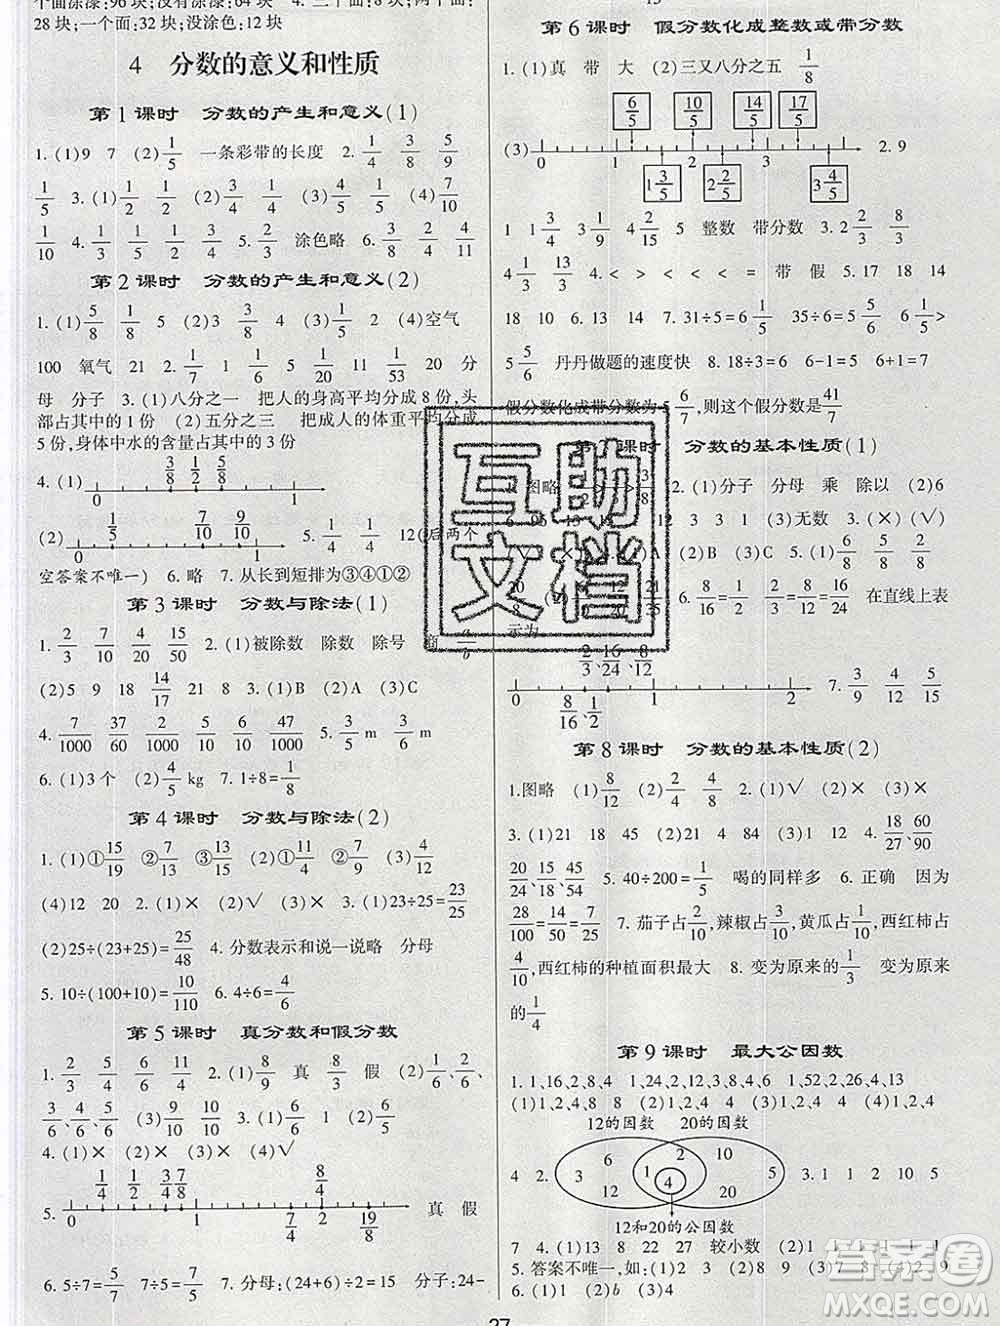 个面涂漆:96块;没有涂漆:64块 4. 三个面:8块;两个面:
28块;一个面:32块;没涂色:12块
4 分数的意义和性质
第1课时 分数的产生和意义(1)
1. (1)9 7 (2)1/5 一条彩带的长度 2. 1/4 3/4 5/9
1/5 3. (1)1/2 1/2 (2)3/4 1/4 (3)1/5 4/5 (4)7/10
1/10 4. 1/3 1/2 1/4 5. 2/3 涂色略 6. 3/8 2/4 4/11
第2课时 分数的产生和意义(2)
1. (1)5/8 1/8 5 (2)3 3/8 4 (3)1/5 2 (4)空气
100 氧气 21 2. 1/7 6 1/20 7/20 11/53 20 分
母 分子 3. (1)八分之一 把人的身高平均分成8份,头
部占其中的1份 (2)五分之三 把成人的体重平均分成
5份,身体中水的含量占其中的3份
4. (1) 3/8 1/2 5/8
0 1
(2) 1/5 7/10 9/10
0 1
5. 1/4 1/4 12(后两个
空答案不唯一) 6. 略 7. 从长到短排为③④①②
第3课时 分数与除法(1)
1. 2/3 7/10 4/20 7/15 2. (1)被除数 除数 除号 商 a/b
(2)5 9 18 14/17 21 8 3. (1)B (2)A (3)C
4. 7/1000 37/1000 2/5 5/10 6/10 47/10 5. 3/5 m 3/4 m
6. (1)3个 (2)4/5 kg 7. 1÷8=1/8
第4课时 分数与除法(2)
1. (1)①15/19 ②7/13 ③13/15 (2)①5/8 ②3/7 (3)4/5
(4)12 20 2. (1)× (2)√ 3. (1)23÷25=23/25
(2)25÷(23+25)=25/48 4. 分数表示和说一说略 分母
5. 10÷(100+10)=10/110 6. 4÷6=4/6
第5课时 真分数和假分数
1. 2/3 5/4 6/6 11/4 2. (1)8/9 真 8/8 假 (2)1/6、2/6、
3/6、4/6、5/6 (3)9/10 9/9 3. (1)6/6 1/6 (2)7/6 (3)5/6
4. (1)× (2)× (3)√ (4)×
5. 1/4 1/2 3/4 7/8 8/4
0 1 7/4 2 19/8 真 假
6. 5÷7=5/7 7÷5=7/5 7. 分母:(24+6)÷2=15 分子:24-
第6课时 假分数化成整数或带分数
1. (1)真 带 大 (2)三又八分之五 1/8
6/5 10/5 14/5 17/5
(3) 0 1 2 3 2. 9
1 3/5 2 2/5 3 4/5
1 1/9 3 1/9 4 2/15 5 整数 带分数 3. 2 2/3 8/3
4 1/3 13/3 4. < > < < < = 带 假 5. 17 18 14
18 10 6. 13 14 7. 31÷5=6 1/5 35÷6=5 5/6 6 1/5>
5 5/6 丹丹做题的速度快 8. 18÷3=6 6-1=5 6+1=7
假分数化成带分数为5 6/7,则这个假分数是41/7
课时 分数的基本性质(1)
图略 3/8 2. (1)分子 分母 乘 除以 (2)6
12 3 3 1 (3)无数 3. (×) (√)
A (2)B (3)C 5.
6. 在直线上表
示为
2/3、16/24、8/12
0 8/16、1/2 1 2 7. 3/4 4/8 5/15
第8课时 分数的基本性质(2)
1.图略 (1)8/12 (2)4/10 2. (1)√ (2)× (3)×
3. (1)21 18 45 (2)21 4 84 (3)1 15 4. 18/27 60/90
20/24、15/18、45/54 5. 40÷200=1/5 喝的同样多 6. 正确 因为
28/100=14/50=7/25 7. 茄子占2/10,辣椒占1/10,黄瓜占3/10,西红柿占
4/10,西红柿的种植面积最大 8. 变为原来的1/3 变为原来
的1/4
第9课时 最大公因数
1. 1,16,2,8,4 1,24,2,12,3,8,4,6 1,52,2,26,4,13
(1)1,2,4,8 8 (2)1,2,4 4 (3)1,2,4
12的因数 20的因数
4 2. 3 6 12 1 2 4 10 5 20 3. 1 2 10 5
12和20的公因数
7 4. (1)13 8 22 27 较小数 (2)1 1
5. 答案不唯一,如:(1)7 8 (2)8 9
6. (1)D (2)b (3)4
27
互助
文档
答案圈
MXQE.COM